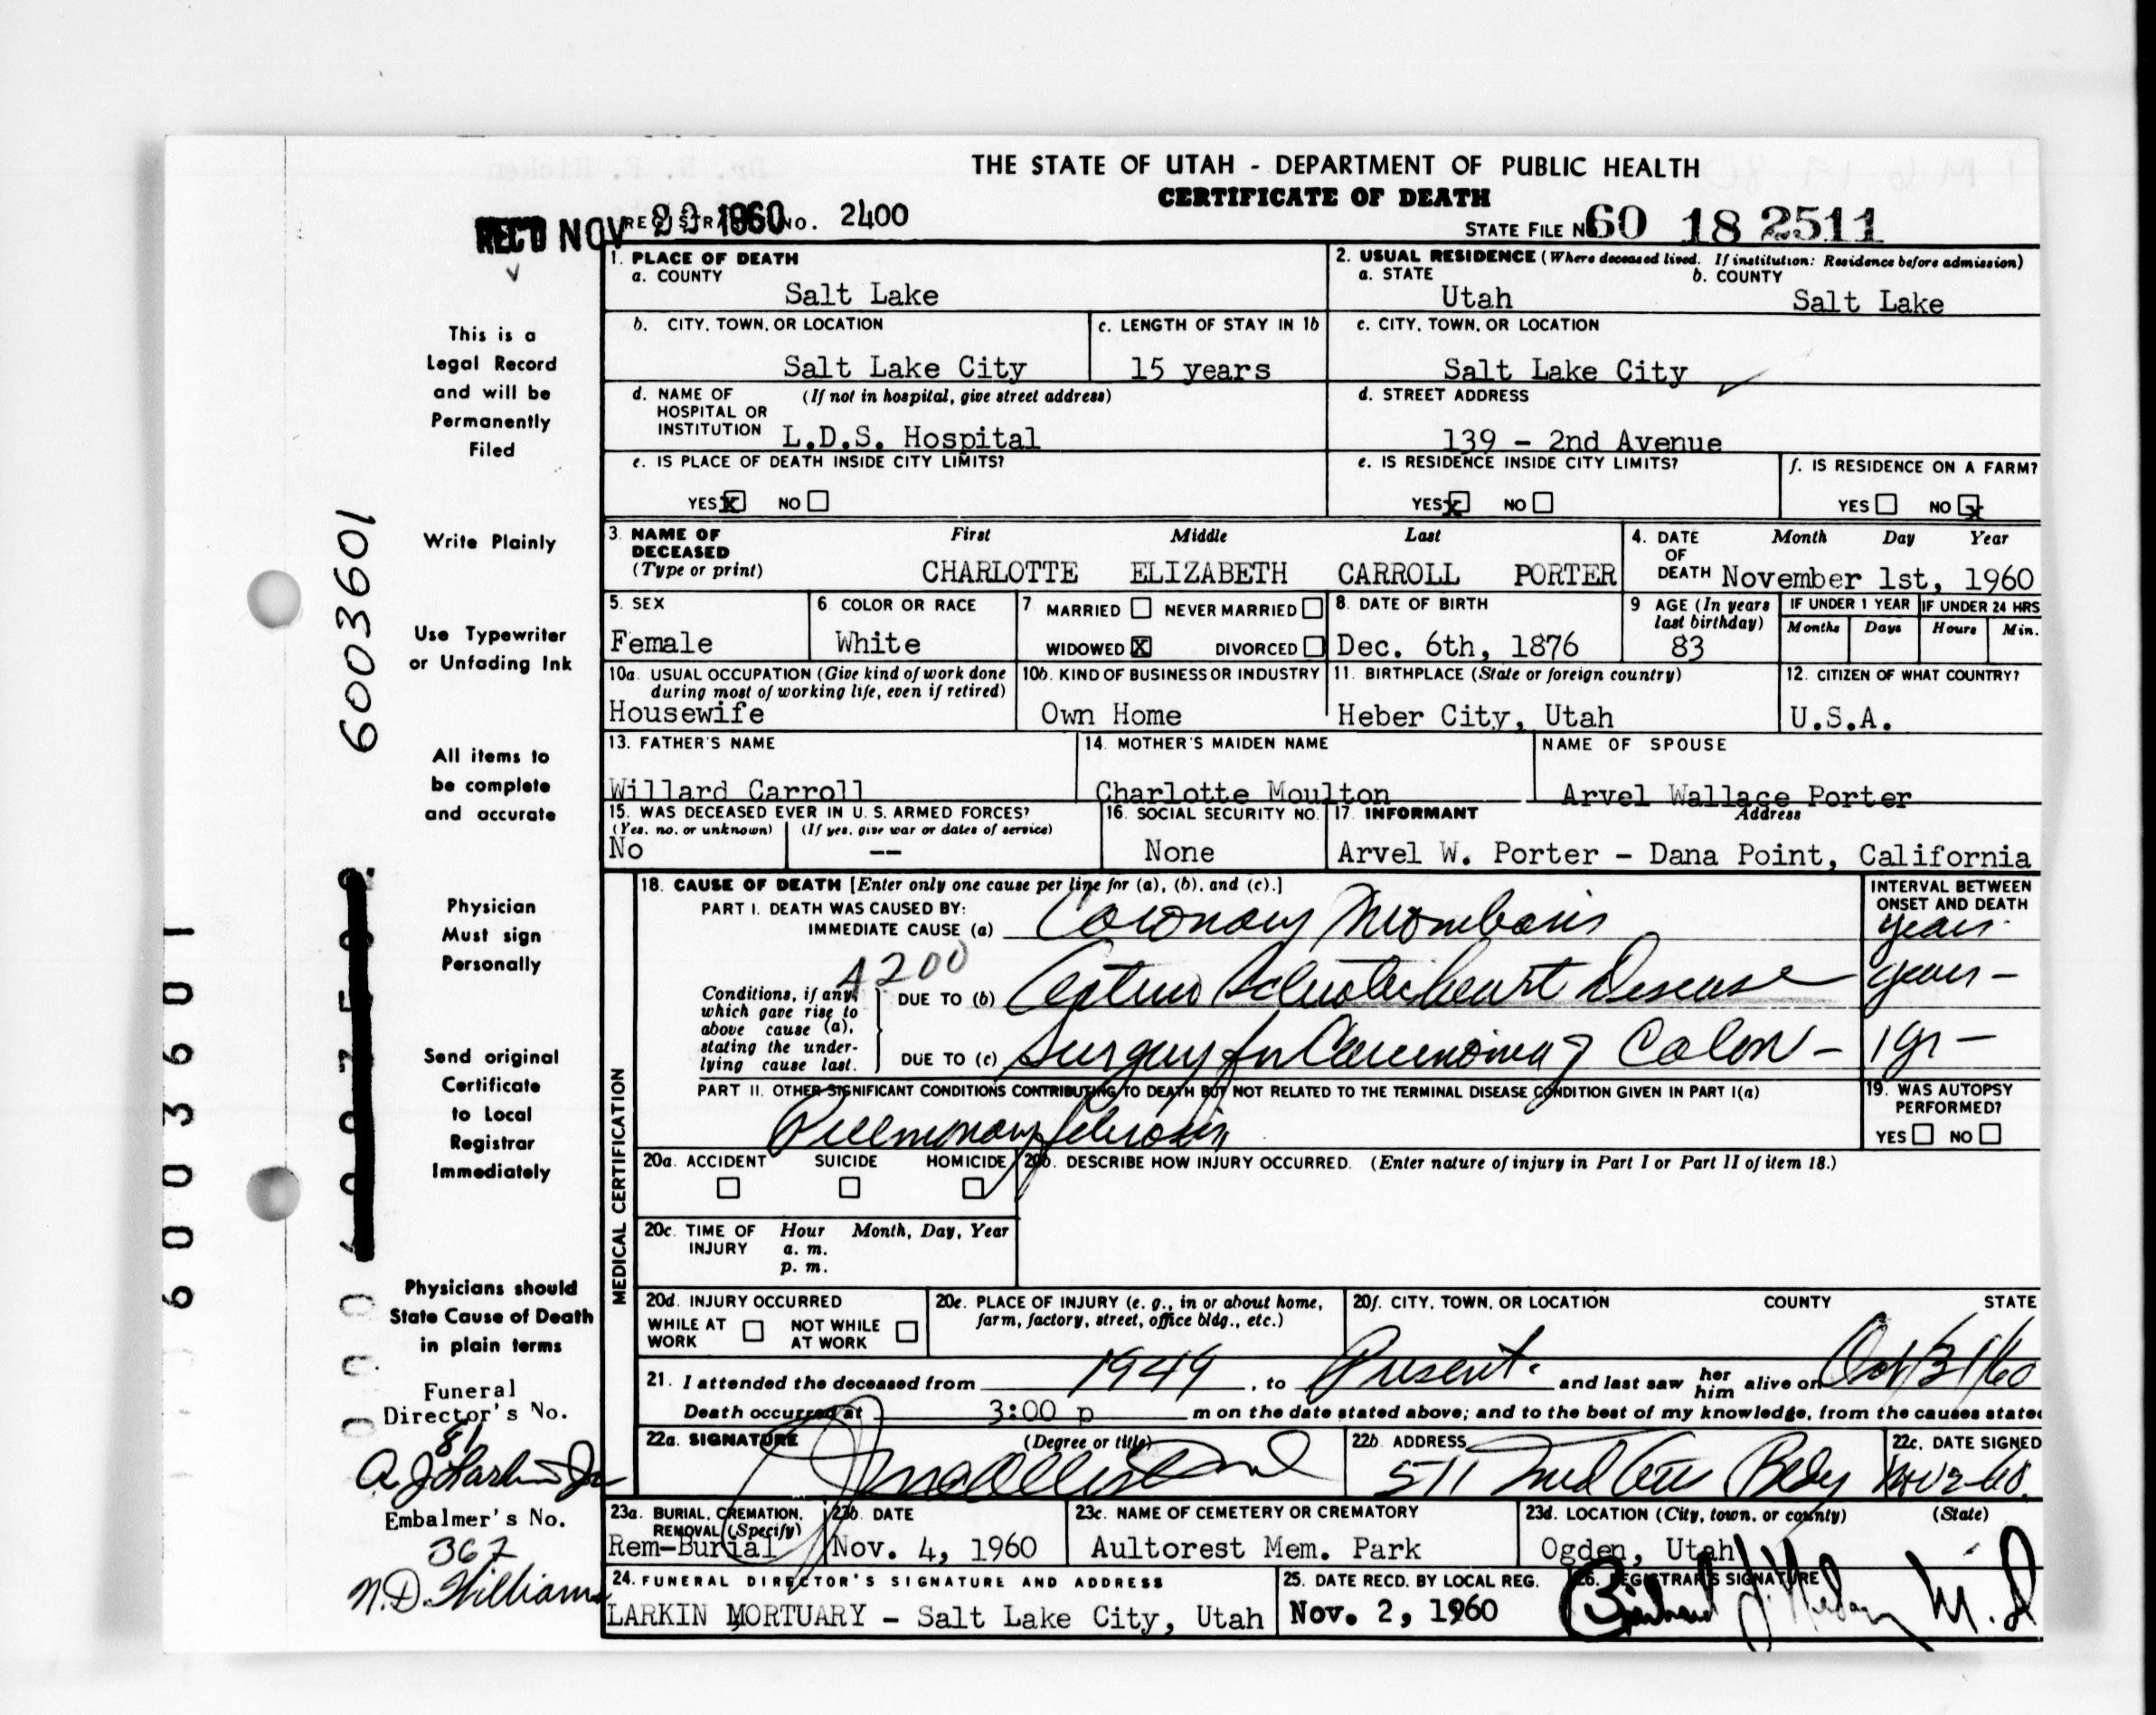 THE STATE OF UTAH - DEPARTMENT OF PUBLIC HEALTH
CERTIFICATE OF DEATH
REC'D NOV 1960 REGISTRAR'S NO. 2400
STATE FILE NO. 60 18 2511
1. PLACE OF DEATH
a. COUNTY
Salt Lake
2. USUAL RESIDENCE (Where deceased lived. If institution: Residence before admission)
a. STATE b. COUNTY
Utah Salt Lake
b. CITY, TOWN, OR LOCATION
Salt Lake City
c. LENGTH OF STAY IN 1b
15 years
c. CITY, TOWN, OR LOCATION
Salt Lake City
d. NAME OF (If not in hospital, give street address)
HOSPITAL OR
INSTITUTION L.D.S. Hospital
d. STREET ADDRESS
139 - 2nd Avenue
e. IS PLACE OF DEATH INSIDE CITY LIMITS?
YES X NO
e. IS RESIDENCE INSIDE CITY LIMITS?
YES X NO
f. IS RESIDENCE ON A FARM?
YES NO X
3. NAME OF DECEASED (Type or print)
First Middle Last
CHARLOTTE ELIZABETH CARROLL PORTER
4. DATE OF DEATH Month Day Year
November 1st, 1960
5. SEX
Female
6. COLOR OR RACE
White
7 MARRIED NEVER MARRIED
WIDOWED X DIVORCED
8. DATE OF BIRTH
Dec. 6th, 1876
9 AGE (In years last birthday)
83
IF UNDER 1 YEAR IF UNDER 24 HRS
Months Days Hours Min.
10a. USUAL OCCUPATION (Give kind of work done
during most of working life, even if retired)
Housewife
10b. KIND OF BUSINESS OR INDUSTRY
Own Home
11. BIRTHPLACE (State or foreign country)
Heber City, Utah
12. CITIZEN OF WHAT COUNTRY?
U.S.A.
13. FATHER'S NAME
Willard Carroll
14. MOTHER'S MAIDEN NAME
Charlotte Moulton
NAME OF SPOUSE
Arvel Wallace Porter
15. WAS DECEASED EVER IN U. S. ARMED FORCES?
(Yes, no, or unknown) (If yes, give war or dates of service)
No --
16. SOCIAL SECURITY NO.
None
17. INFORMANT Address
Arvel W. Porter - Dana Point, California
MEDICAL CERTIFICATION
18. CAUSE OF DEATH [Enter only one cause per line for (a), (b), and (c).]
PART I. DEATH WAS CAUSED BY:
IMMEDIATE CAUSE (a) Coronary Thrombosis
INTERVAL BETWEEN
ONSET AND DEATH
years
4200
Conditions, if any,
which gave rise to
above cause (a),
stating the under-
lying cause last.
DUE TO (b) Heart Disease years -
DUE TO (c) Surgery for Carcinoma of Colon - 1 yr -
PART II. OTHER SIGNIFICANT CONDITIONS CONTRIBUTING TO DEATH BUT NOT RELATED TO THE TERMINAL DISEASE CONDITION GIVEN IN PART I(a)
Pulmonary
19. WAS AUTOPSY
PERFORMED?
YES NO
20a. ACCIDENT SUICIDE HOMICIDE
20b. DESCRIBE HOW INJURY OCCURRED. (Enter nature of injury in Part I or Part II of item 18.)
20c. TIME OF INJURY Hour Month, Day, Year
a. m.
p. m.
20d. INJURY OCCURRED
WHILE AT WORK NOT WHILE AT WORK
20e. PLACE OF INJURY (e. g., in or about home,
farm, factory, street, office bldg., etc.)
20f. CITY, TOWN, OR LOCATION COUNTY STATE
21. I attended the deceased from 1949, to Present. and last saw her him alive on Oct 31/60
Death occurred at 3:00 p m on the date stated above; and to the best of my knowledge, from the causes stated
22a. SIGNATURE (Degree or title)
22b. ADDRESS
511
22c. DATE SIGNED
Nov 2-60.
23a. BURIAL, CREMATION,
REMOVAL (Specify)
Rem-Burial
23b. DATE
Nov. 4, 1960
23c. NAME OF CEMETERY OR CREMATORY
Aultorest Mem. Park
23d. LOCATION (City, town, or county) (State)
Ogden, Utah
24. FUNERAL DIRECTOR'S SIGNATURE AND ADDRESS
LARKIN MORTUARY - Salt Lake City, Utah
25. DATE RECD. BY LOCAL REG.
Nov. 2, 1960
26. REGISTRAR'S SIGNATURE
M. D
This is a
Legal Record
and will be
Permanently
Filed
Write Plainly
Use Typewriter
or Unfading Ink
All items to
be complete
and accurate
Physician
Must sign
Personally
Send original
Certificate
to Local
Registrar
Immediately
Physicians should
State Cause of Death
in plain terms
Funeral
Director's No.
81
A J Larkin Jr
Embalmer's No.
367
N.D. Williams
6003601
6003601